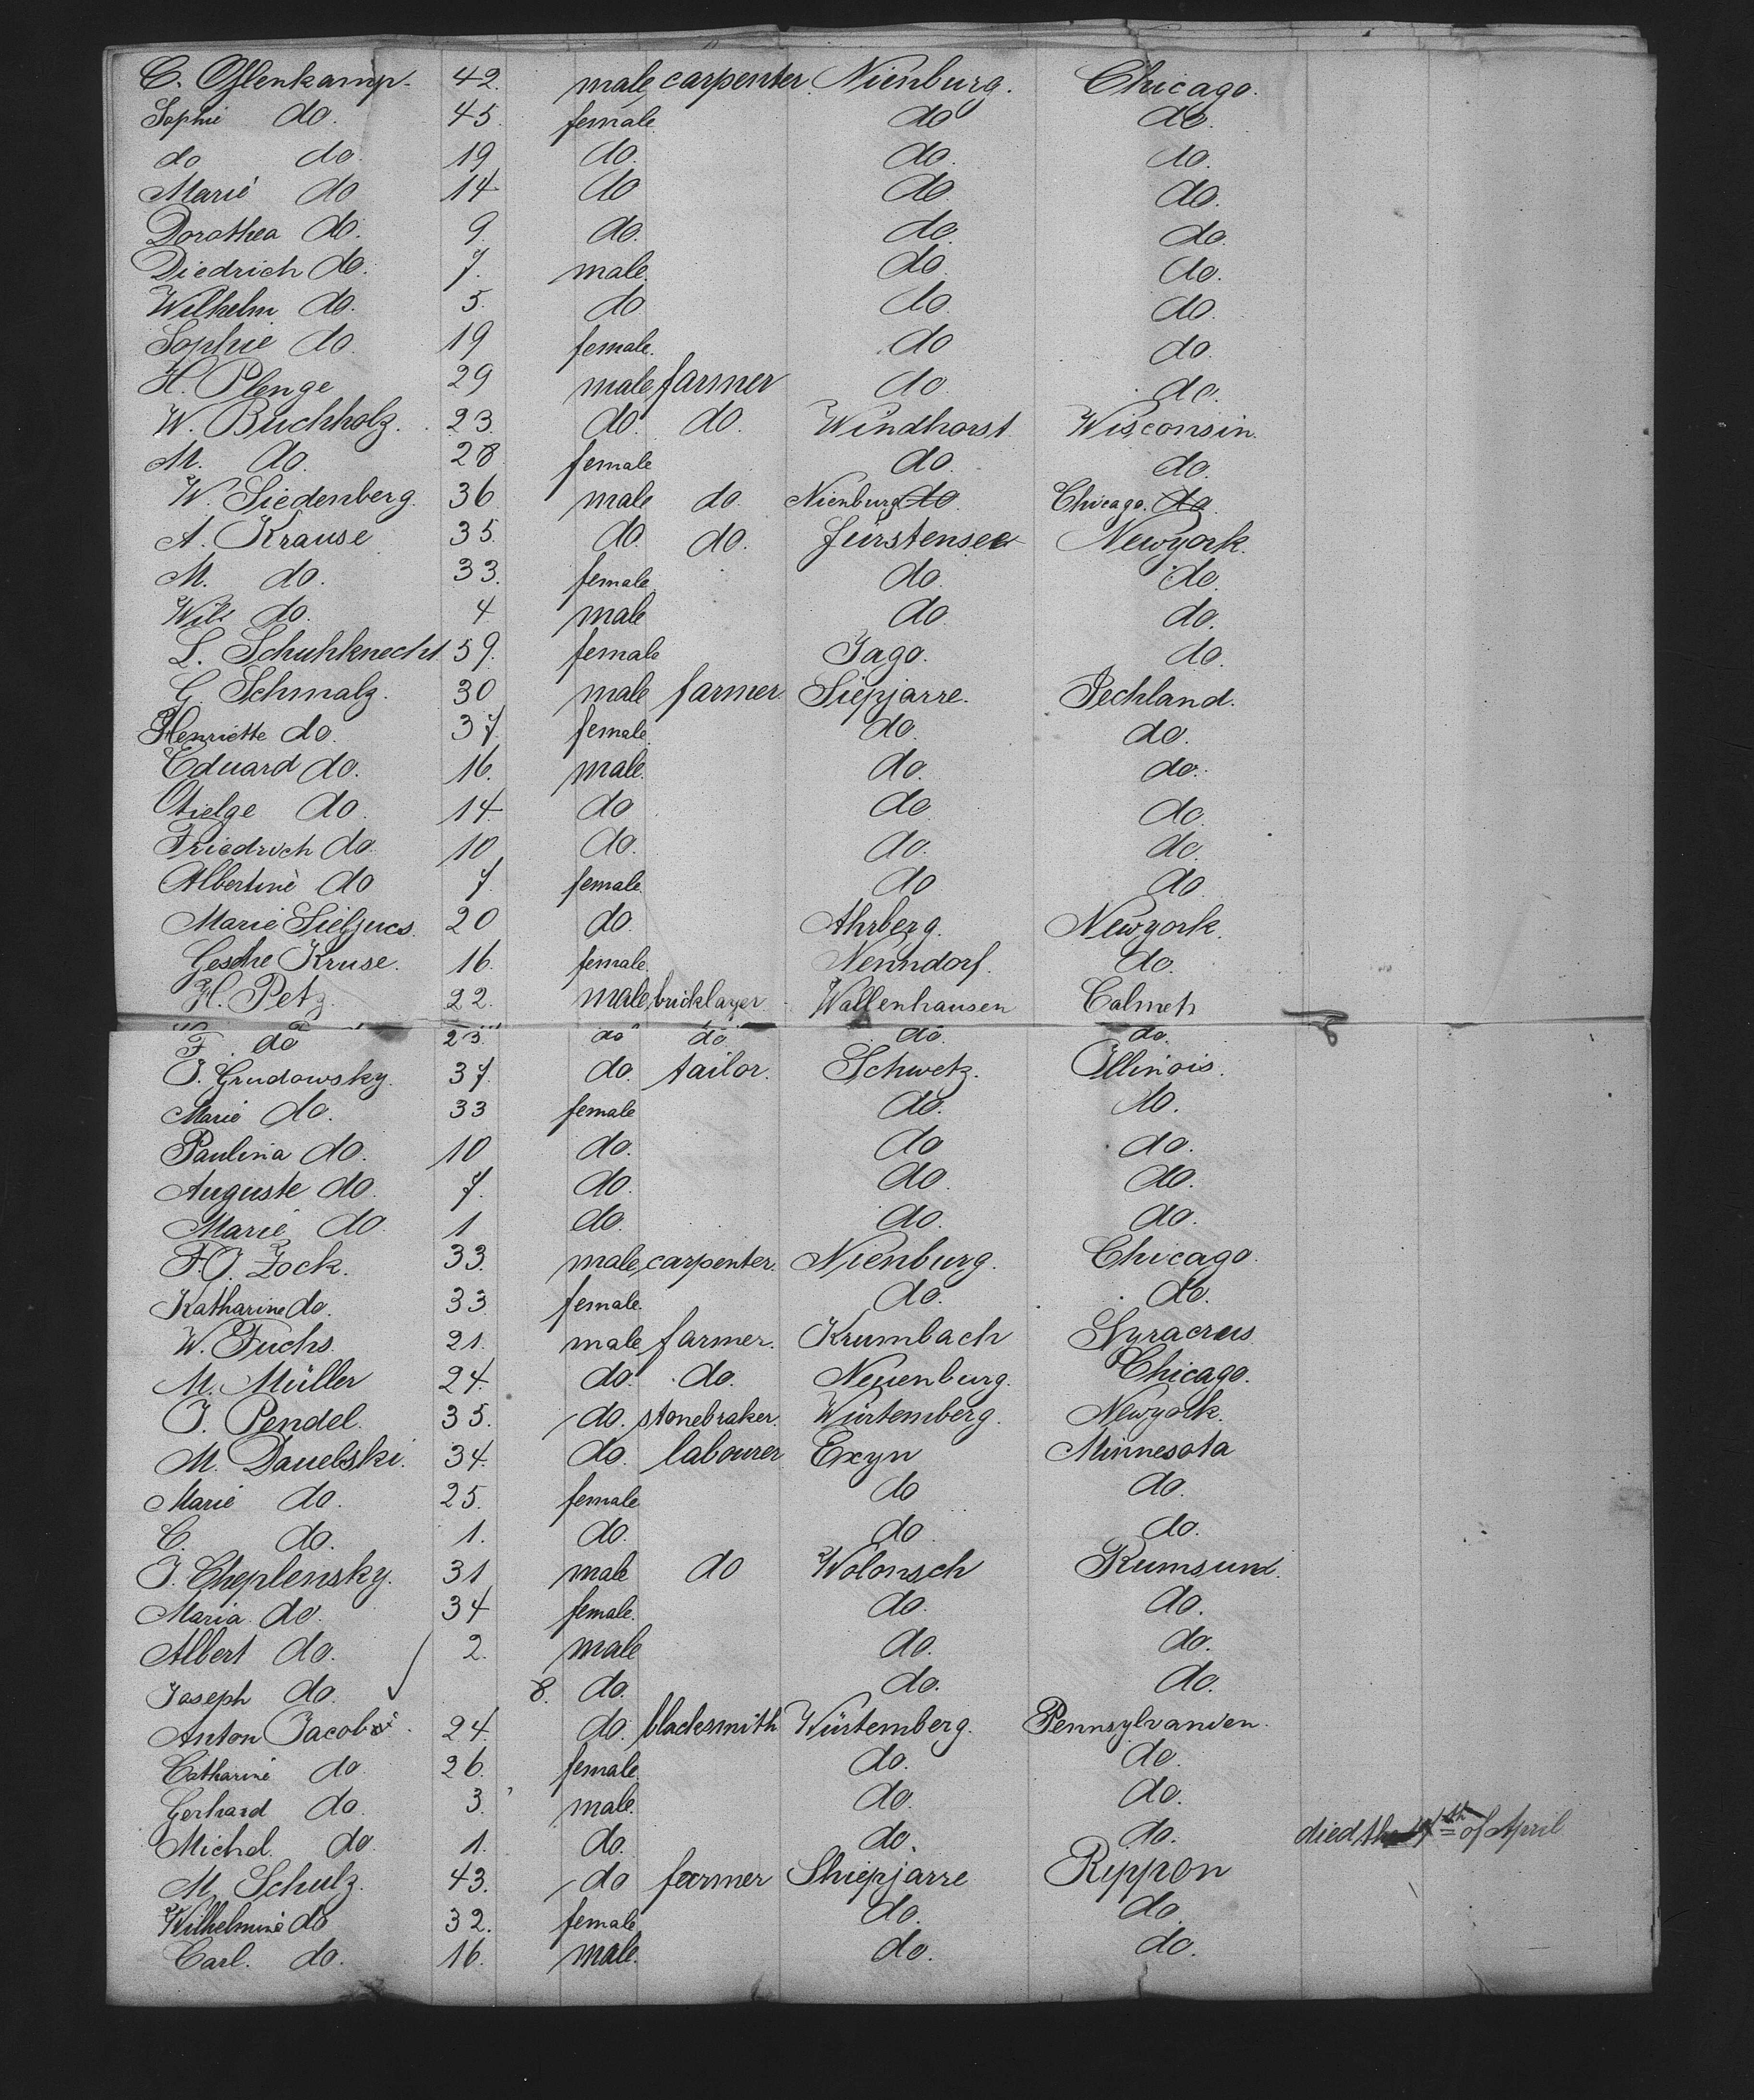 C. Oflenkamp. 42. male carpenter. Nienburg. Chicago.
Sophie do. 45. female. do do.
do do. 19 do. do. do.
Marie do 14 do do do.
Dorothea do. 9. do. do. do.
Diedrich do. 7. male. do. do.
Wilhelm do. 5. do do. do.
Sophie do. 19 female. do do.
H. Plenge 29 male farmer do. do.
W. Buchholz. 23. do. do. Windhorst. Wisconsin.
M. do. 28 female do. do.
W. Siedenberg. 36 male do. Nienburg do. Chicago. do.
A. Krause 35. do. do. Fürstensee Newyork.
M. do. 33. female. do. do.
Wilh do. 4 male do. do.
L. Schuhknecht 59. female Jago. do.
G. Schmalz. 30 male farmer Siepjarre. Pechland.
Henriette do. 37. female. do. do.
Eduard do. 16. male. do. do.
Otielge do. 14 do do do.
Friedrich do 10 do. do. do.
Albertine do 7. female. do do
Marie 20 do. Ahrberg. Newyork.
Gesche Kruse. 16. female. Nenndorf. do.
H. Petz. 22. male bricklayer Wallenhausen Calmeh
F. do 23. do do. do. do.
J. Grudowsky. 37. do. tailor. Schwetz. Illinois.
Marie do. 33 female do. do.
Paulina do. 10 do. do do.
Auguste do. 7. do. do. do.
Marie do. 1 do. do. do.
F.J. Zock. 33. male carpenter. Nienburg. Chicago.
Katharine do. 33 female. do. do.
W. Fuchs. 21. male farmer. Krumbach Syracrus
M. Müller 24. do. do. Neuenburg. Chicago.
J. Pendel. 35. do. stonebraker. Würtemberg. Newyolk.
M. Dauebski. 34. do. labourer Exyn Minnesota
Marie do. 25. female do do.
C. do. 1. do. do do.
J. Cheplensky. 31 male do Wolonsch Rumsund.
Maria do. 34 female. do. do.
Albert do. 2. male do. do.
Joseph do. 8. do. do. do.
Anton Jacobi. 24. do. blacksmith Würtemberg. Pennsylvanien.
Catharine do. 26. female. do. do.
Gerhard do. 3. male. do. do.
Michel. do. 1. do. do. do. died the th of April
M. Schulz. 43. do farmer Shiepjarre Rippon
Wilhelmine do 32. female do. do.
Carl. do. 16. male. do. do.